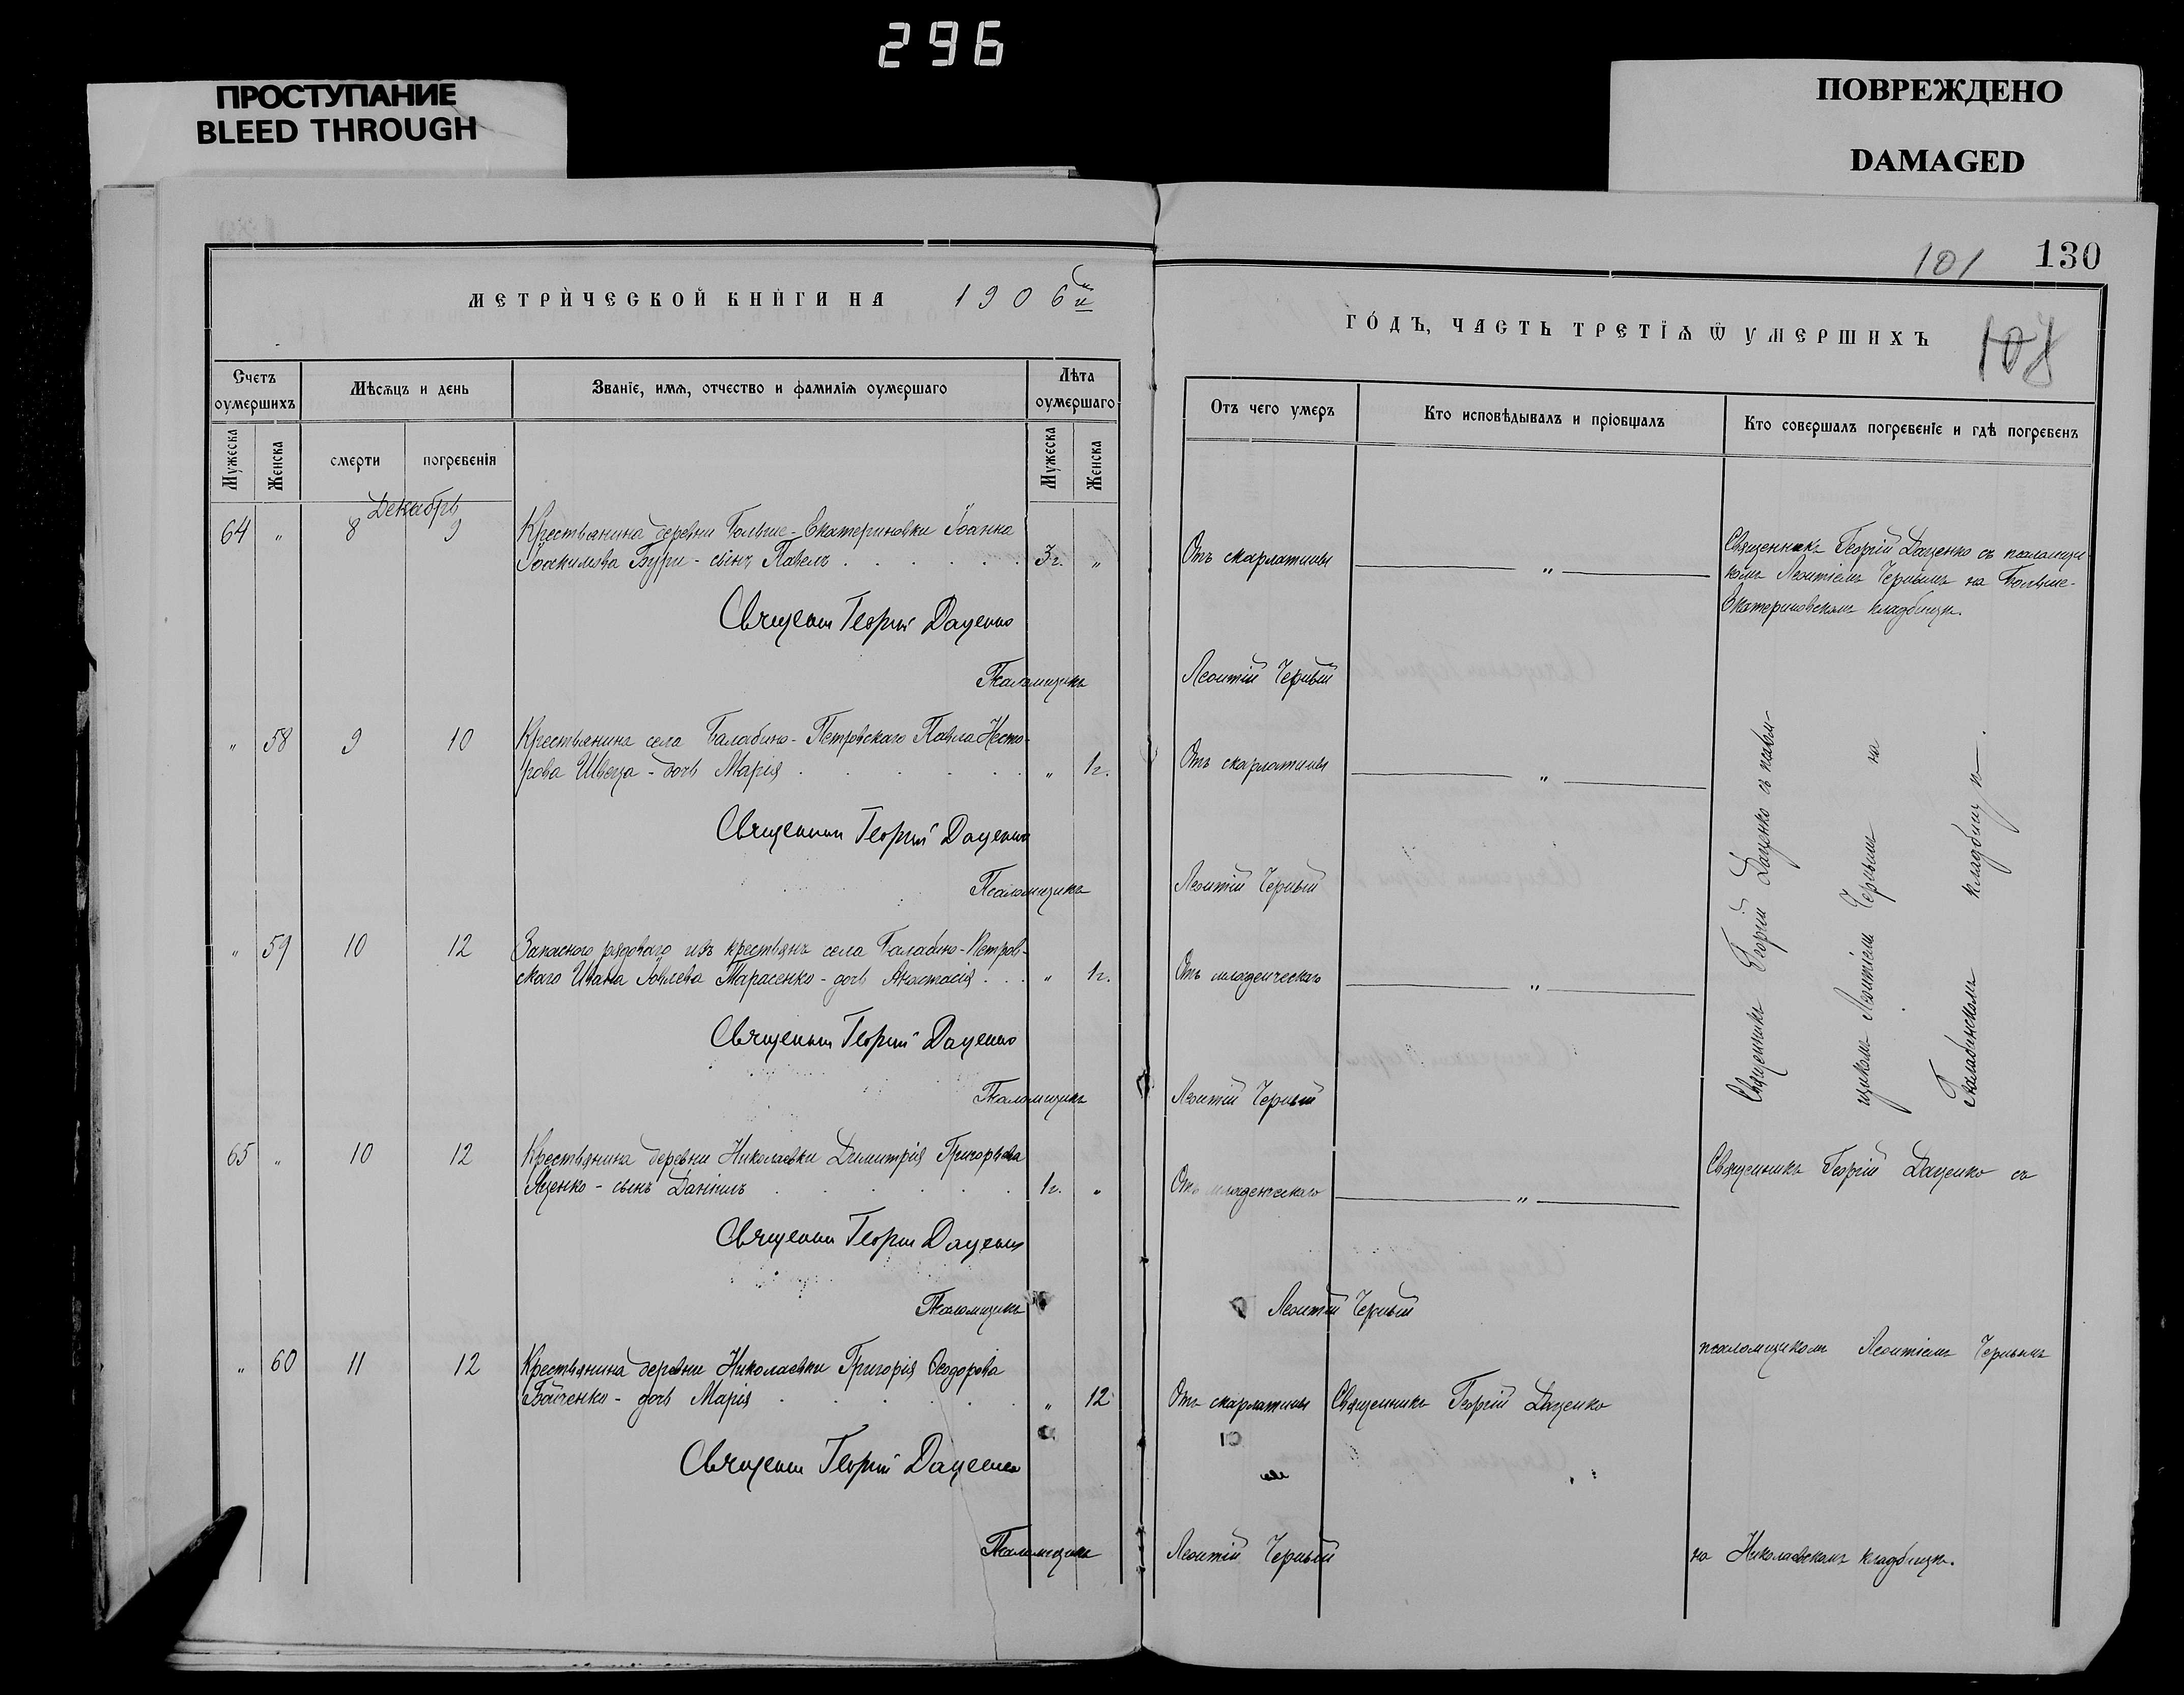 296
ПРОСТУПАНИЕ
BLEED THROUGH
ПОВРЕЖДЕНО
DAMAGED
101 130
МЕТРИЧЕСКОЙ КНИГИ НА 1906й
ГОДЪ, ЧАСТЬ ТРЕТІѦ Ѿ УМЕРШИХЪ
Счетъ оумершихъ
Мѣсѧцъ и день
Званіе, имѧ, отчество и фамиліѧ оумершаго
Лѣта оумершаго
Отъ чего умеръ
Кто исповѣдывалъ и пріобщалъ
Кто совершалъ погребеніе и гдѣ погребенъ
Мужеска
Женска
смерти
погребенія
Мужеска
Женска
Декабрь
64 " 8 9 Крестьянина деревни Больше-Екатериновки Іоанна
Іоакимова Бури - сынъ Павелъ 3г. "
Отъ скарлатины "
Священникъ Георгій Даценко съ псаломщи-
комъ Леонтіемъ Чернымъ на Больше-
Екатериновскомъ кладбищѣ.
Священник Георгій Даценко
Псаломщикъ Леонтій Черный
" 58 9 10 Крестьянина села Балабино-Петровскаго Павла Несто-
рова Швеца - дочь Марія " 1г.
Отъ скарлатины "
Священник Георгій Даценко
Псаломщикъ Леонтій Черный
" 59 10 12 Запасного рядового изъ крестьянъ села Балабино-Петров-
скаго Ивана Іовлева Тарасенко - дочь Анастасія " 1г.
Отъ младенческаго "
Священникъ Георгій Даценко съ псалом-
щикомъ Леонтіемъ Чернымъ на
Балабинскомъ кладбищѣ.
Священник Георгій Даценко
Псаломщикъ Леонтій Черный
65 " 10 12 Крестьянина деревни Николаевки Димитрія Григорьева
Яценко - сынъ Даніилъ 1г. "
Отъ младенческаго "
Священникъ Георгій Даценко съ
Священник Георгій Даценко
Псаломщикъ Леонтій Черный
псаломщикомъ Леонтіемъ Чернымъ
" 60 11 12 Крестьянина деревни Николаевки Григорія Ѳеодорова
Бойченко - дочь Марія " 12
Отъ скарлатины Священникъ Георгій Даценко
Священник Георгій Даценко
Псаломщикъ Леонтій Черный
на Николаевскомъ кладбищѣ.